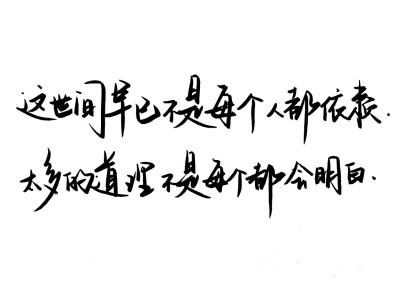 这世间早已不是每个人都依靠.
太多的道理不是每个都会明白.